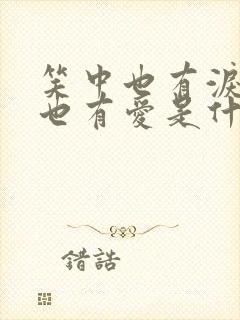 笑中也有淚
也有愛是什
錯誥